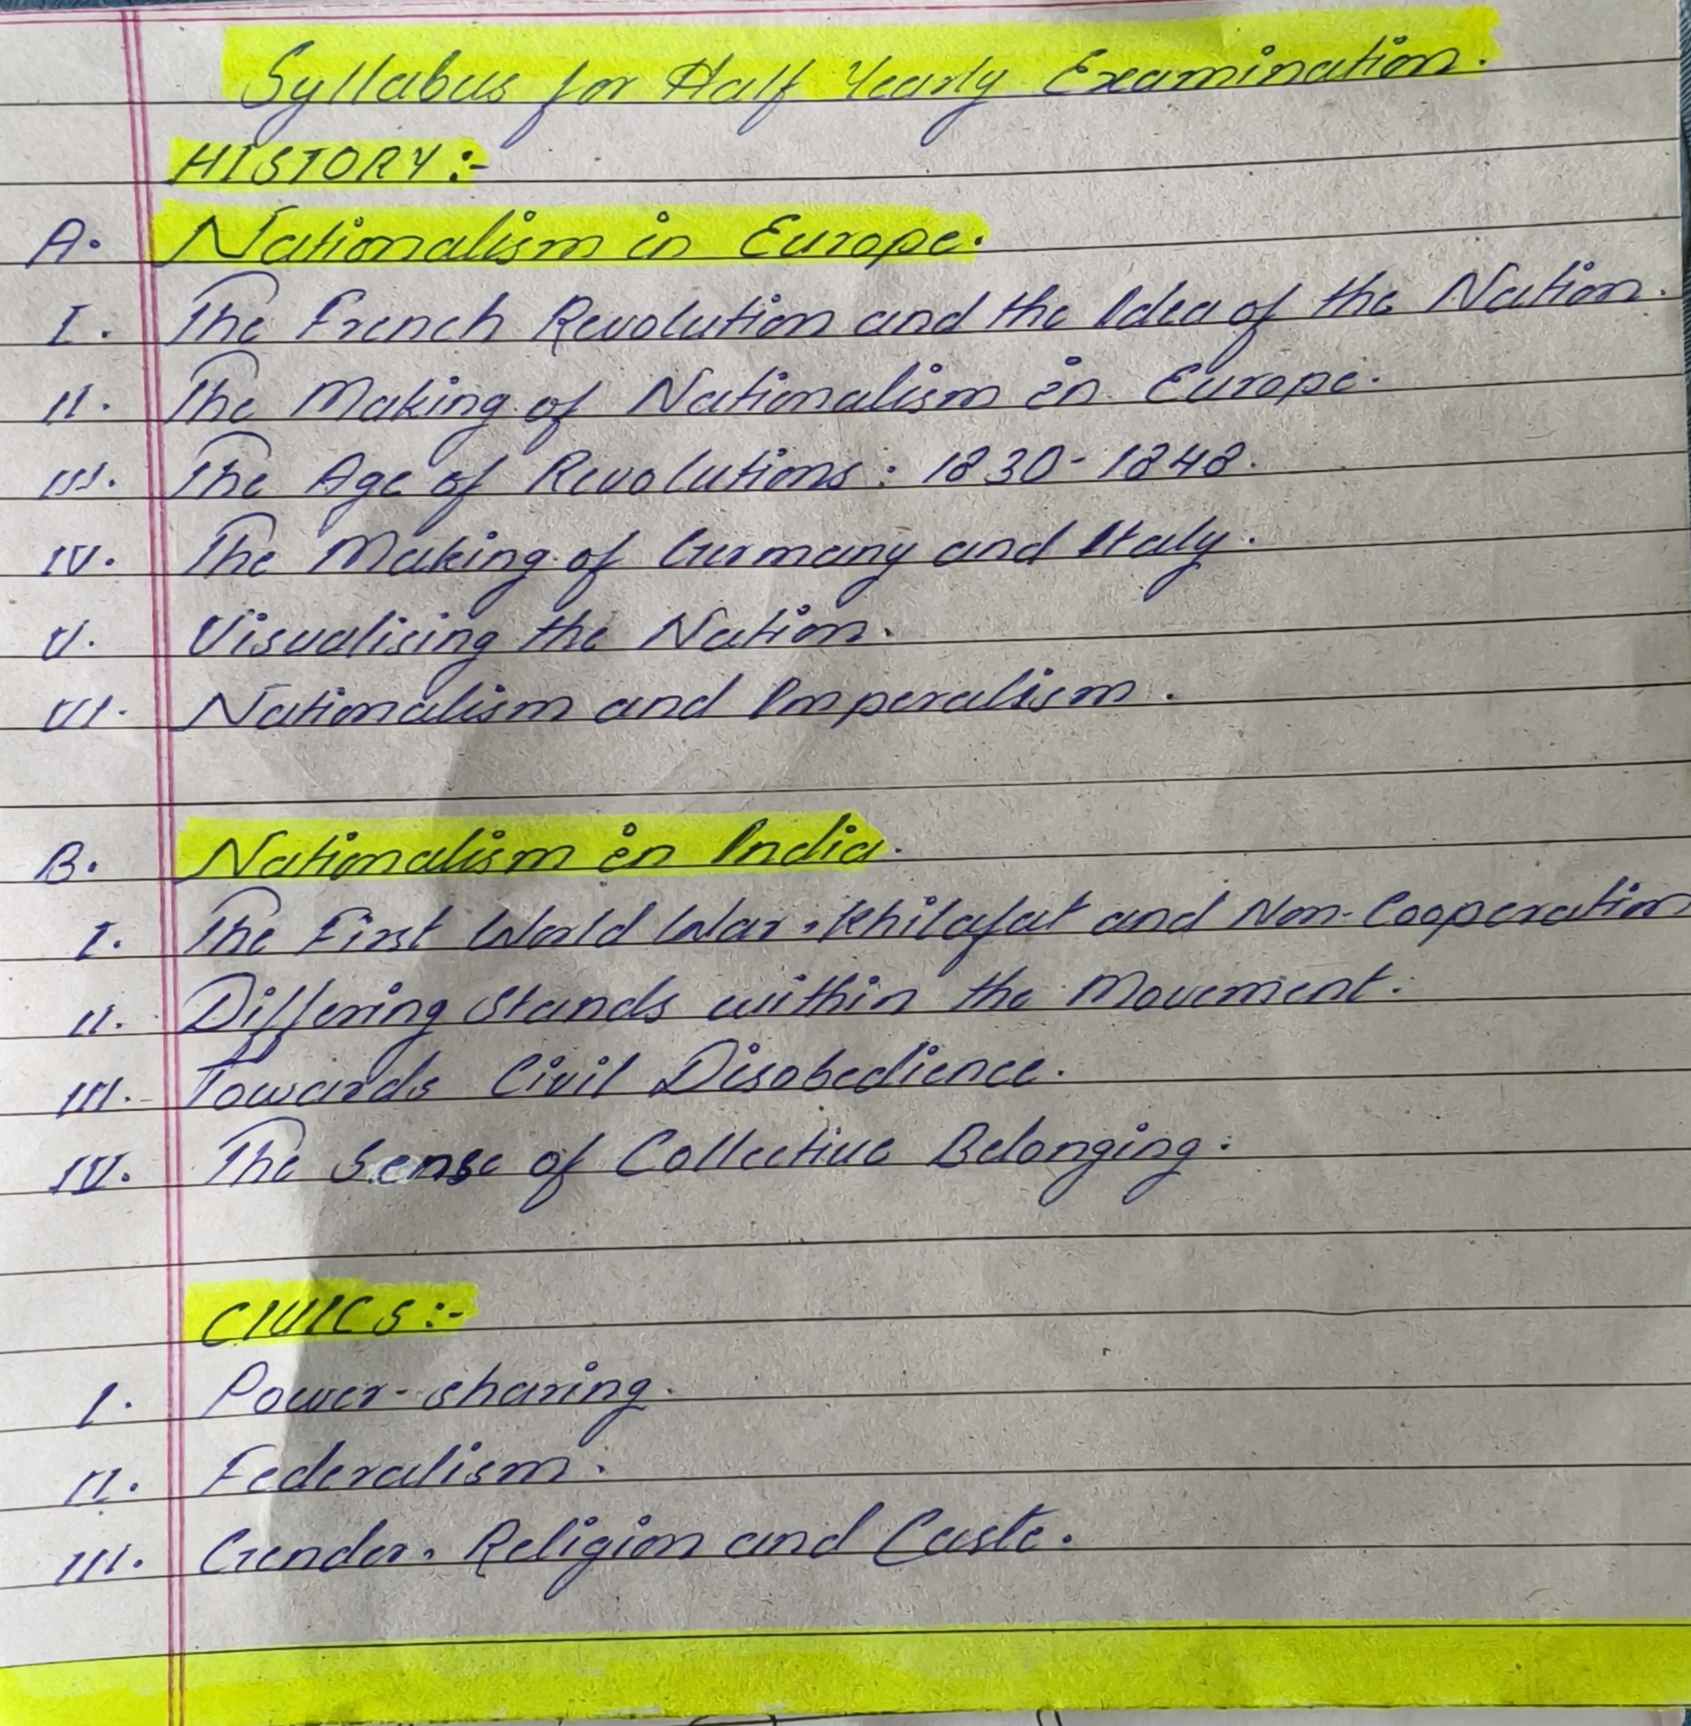 Syllabus for Half Yearly Examination.
HISTORY:-
A. Nationalism in Europe.
I. The French Revolution and the Idea of the Nation.
II. The Making of Nationalism in Europe.
III. The Age of Revolutions: 1830-1848.
IV. The Making of Germany and Italy.
V. Visualising the Nation.
VI. Nationalism and Imperalism.
B. Nationalism in India.
I. The First World War, Khilafat and Non-Cooperation
II. Differing Stands within the Movement.
III. Towards Civil Disobedience.
IV. The Sense of Collective Belonging.
CIVICS:-
I. Power-sharing.
II. Federalism.
III. Gender, Religion and Caste.